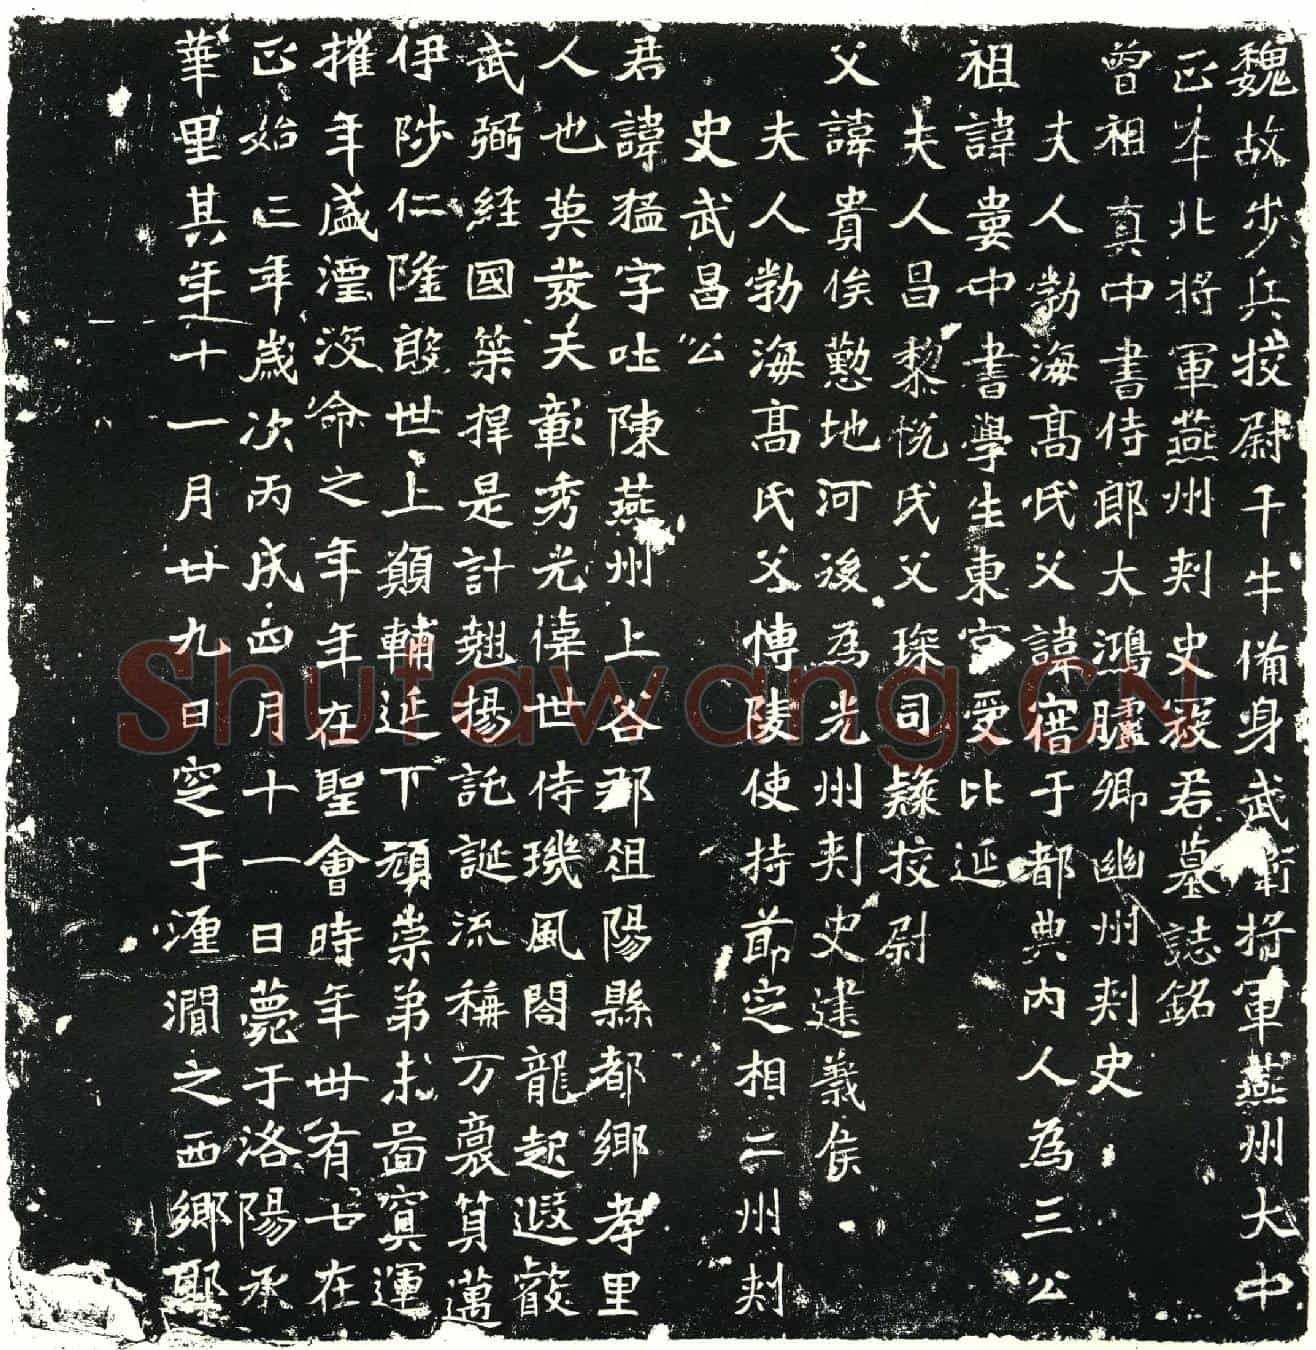 魏故步兵校尉千牛備身武衛將軍燕州大中
正平北將軍燕州刾史寇君墓誌銘
曾祖真中書侍郎大鴻臚卿幽州刾史
夫人勃海髙氏父諱
祖諱婁中書學生東宮受比延
夫人昌黎悅氏父琛司隸校尉
父諱貴侯懃地河後為光州刾史建義侯
夫人勃海髙氏父博陵使持節定相二州刾
史武昌公
君諱猛字吐陳燕州上谷郡俎陽縣都鄉孝里
人也英發夫彰秀光偉世侍璣風閣龍起遐
武弼經國筞捍是計翹揚託誕流稱万裛算邁
伊陟仁隆殷世上顛輔延下頑崇弟未啚寘運
摧年盛湮沒命之年年年在聖會時年丗有七在
正始三年歲次丙戌四月十一日薨于洛陽承
華里其年十一月廿九日窆于湹澗之西鄉耶
Shufawang.CN